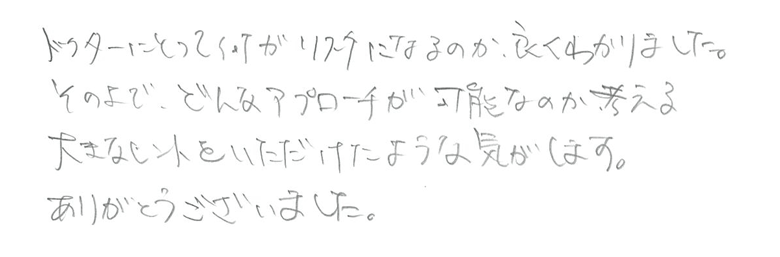 ドクターにとって何がリスクになるのか、良くわかりました。
その上で、どんなアプローチが可能なのか考える
大きなヒントをいただけたような気がします。
ありがとうございました。